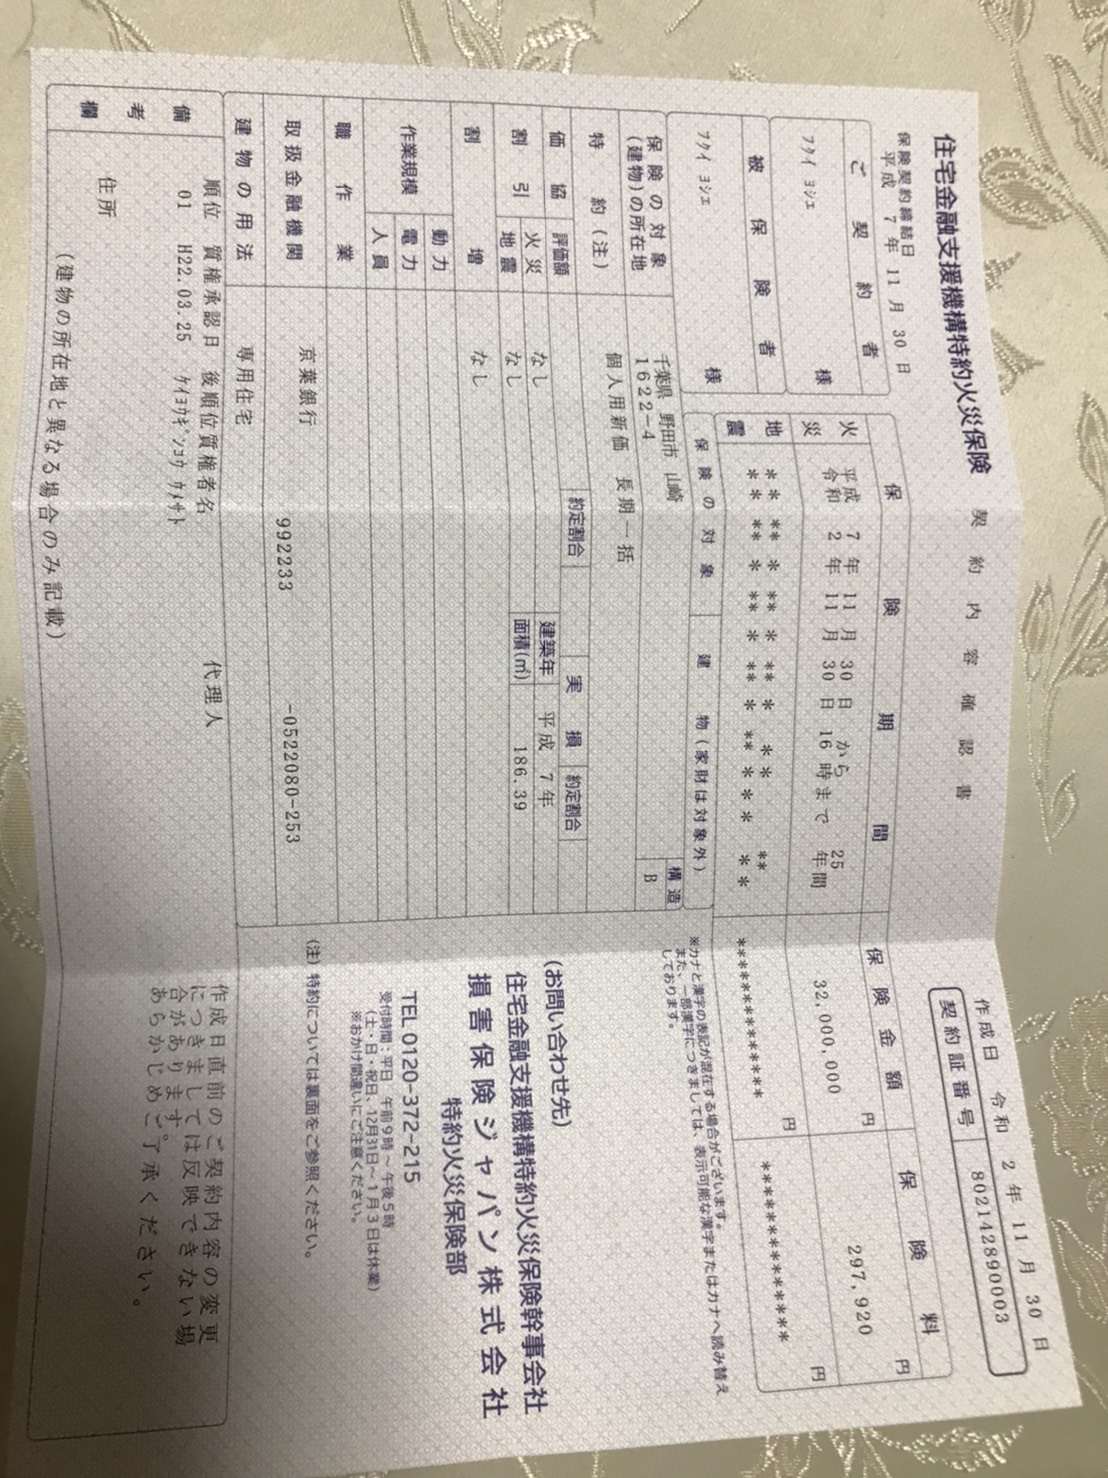 住宅金融支援機構特約火災保険 契約内容確認書
作成日 令和 2 年 11 月 30 日
契約証番号 802142890003
保険契約締結日
平成 7 年 11 月 30 日
ご契約者
フケイ ヨシエ 様
被保険者
フケイ ヨシエ 様
保険期間 保険金額 保険料
火災 平成 7 年 11 月 30 日 から 25
令和 2 年 11 月 30 日 16 時まで 年間
32,000,000 円
297,920 円
地震 ** ** * ** * ** * ** **
** ** * ** * ** * ** * * * * *
************* 円
************** 円
保険の対象 建物(家財は対象外)
※カナと漢字の表記が混在する場合がございます。
また、一部漢字につきましては、表示可能な漢字またはカナへ読み替えしております。
保険の対象(建物)の所在地
千葉県 野田市 山崎
1622-4
構造
B
特約(注) 個人用新価 長期一括
価協 評価額 約定割合 実損 約定割合
割引 火災 なし
地震 なし
建築年 平成 7 年
面積(㎡) 186.39
割増 なし
作業規模 動力
電力
人員
職作業
取扱金融機関 京葉銀行
992233 -0522080-253
建物の用法 専用住宅
(お問い合わせ先)
住宅金融支援機構特約火災保険幹事会社
損害保険ジャパン株式会社
特約火災保険部
TEL 0120-372-215
受付時間:平日 午前9時~午後5時
(土・日・祝日、12月31日~1月3日は休業)
※おかけ間違いにご注意ください。
(注)特約については裏面をご参照ください。
備考欄
順位 質権承認日 後順位質権者名 代理人
01 H22.03.25 ケイヨウギンコウ カメサト
住所
(建物の所在地と異なる場合のみ記載)
作成日直前のご契約内容の変更
につきましては反映できない場
合があります。
あらかじめご了承ください。